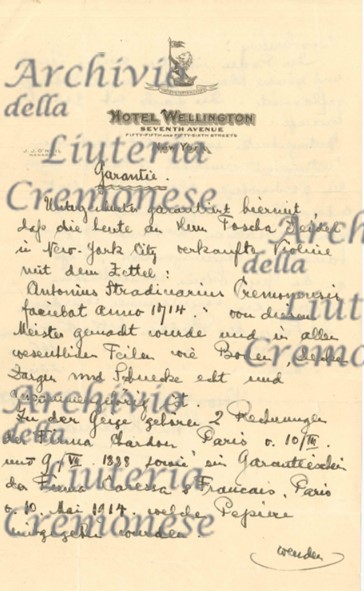 Archivio
della
Liuteria
Cremonese
HOTEL WELLINGTON
SEVENTH AVENUE
FIFTY-FIFTH AND FIFTY-SIXTH STREETS
New York
Garantie.
Unterzeichneter garantiert hiermit
daß die heute an Herrn Toscha Seidel
in New-York City verkaufte Violine
mit dem Zettel:
Antonius Stradivarius Cremonensis
faciebat anno 1714." von diesem
Meister gemacht wurde und in allen
wesentlichen Teilen wie Boden, Decke
Zargen und Schnecke echt und
ist.
Zu der Geige gehören 2 Rechnungen
der Firma Hardon Paris v. 10/III.
und 9/VII 1888 sowie ein Garantieschein
der Firma Caressa & Francais, Paris
v. 10. Mai 1914. welche Papiere
mitgegeben wurden.
wenden
Archivio
della
Liuteria
Cremonese
Archivio
della
Liuteria
Cremonese